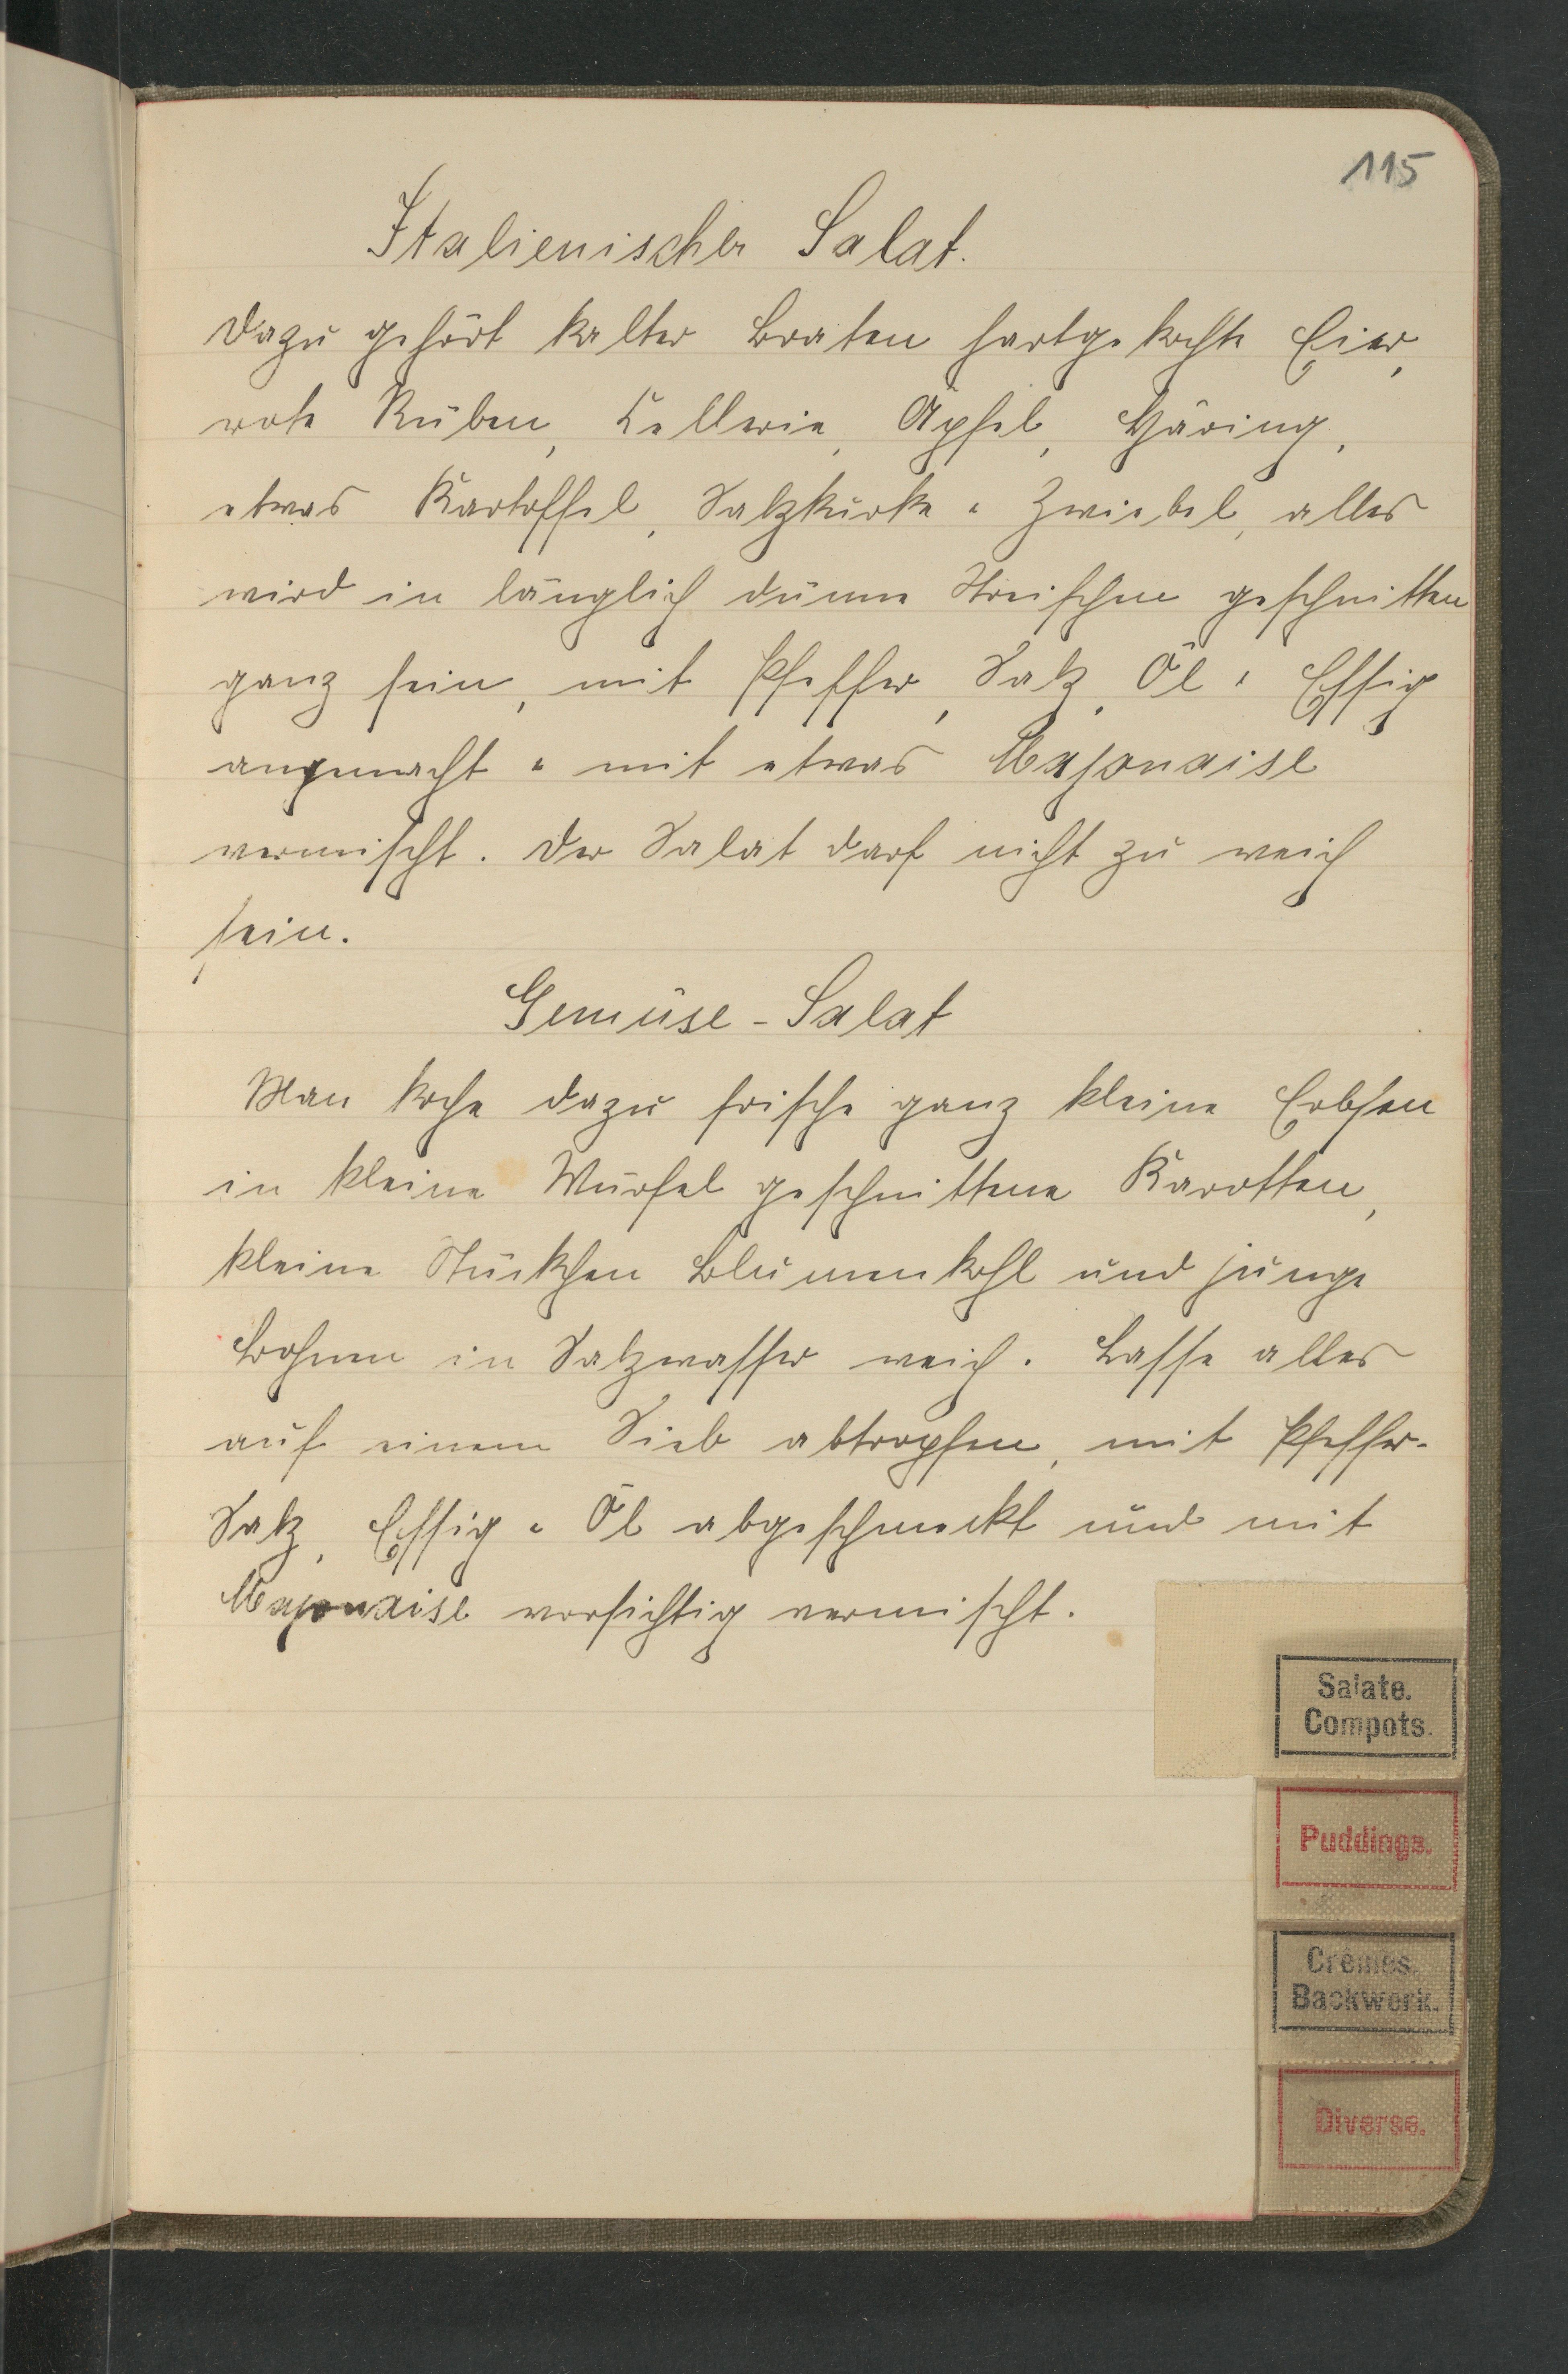 115
Italienischer Salat.
Dazu gehört kalter Braten hartgekochte Eier,
rote Rüben, Cellerie, Äpfel, Häring,
etwas Kartoffel, Salzkurke u Zwiebel, alles
wird in länglich dünne Streifchen geschnitten
ganz fein, mit Pfeffer, Salz, Öl u Essig
angemacht u mit etwas Majonaise
vermischt. Der Salat darf nicht zu weich
sein.
Gemüse-Salat
Man koche dazu frische ganz kleine Erbsen
in kleine Würfel geschnittene Karotten,
kleine Stückchen Blumenkohl und junge
Bohnen in Salzwasser weich. Lasse alles
auf einem Sieb abtropfen, mit Pfeffer-
Salz, Essig u Öl abgeschmeckt und mit
Majonaise vorsichtig vermischt.
Salate.
Compots.
Puddings.
Crêmes.
Backwerk.
Diverse.